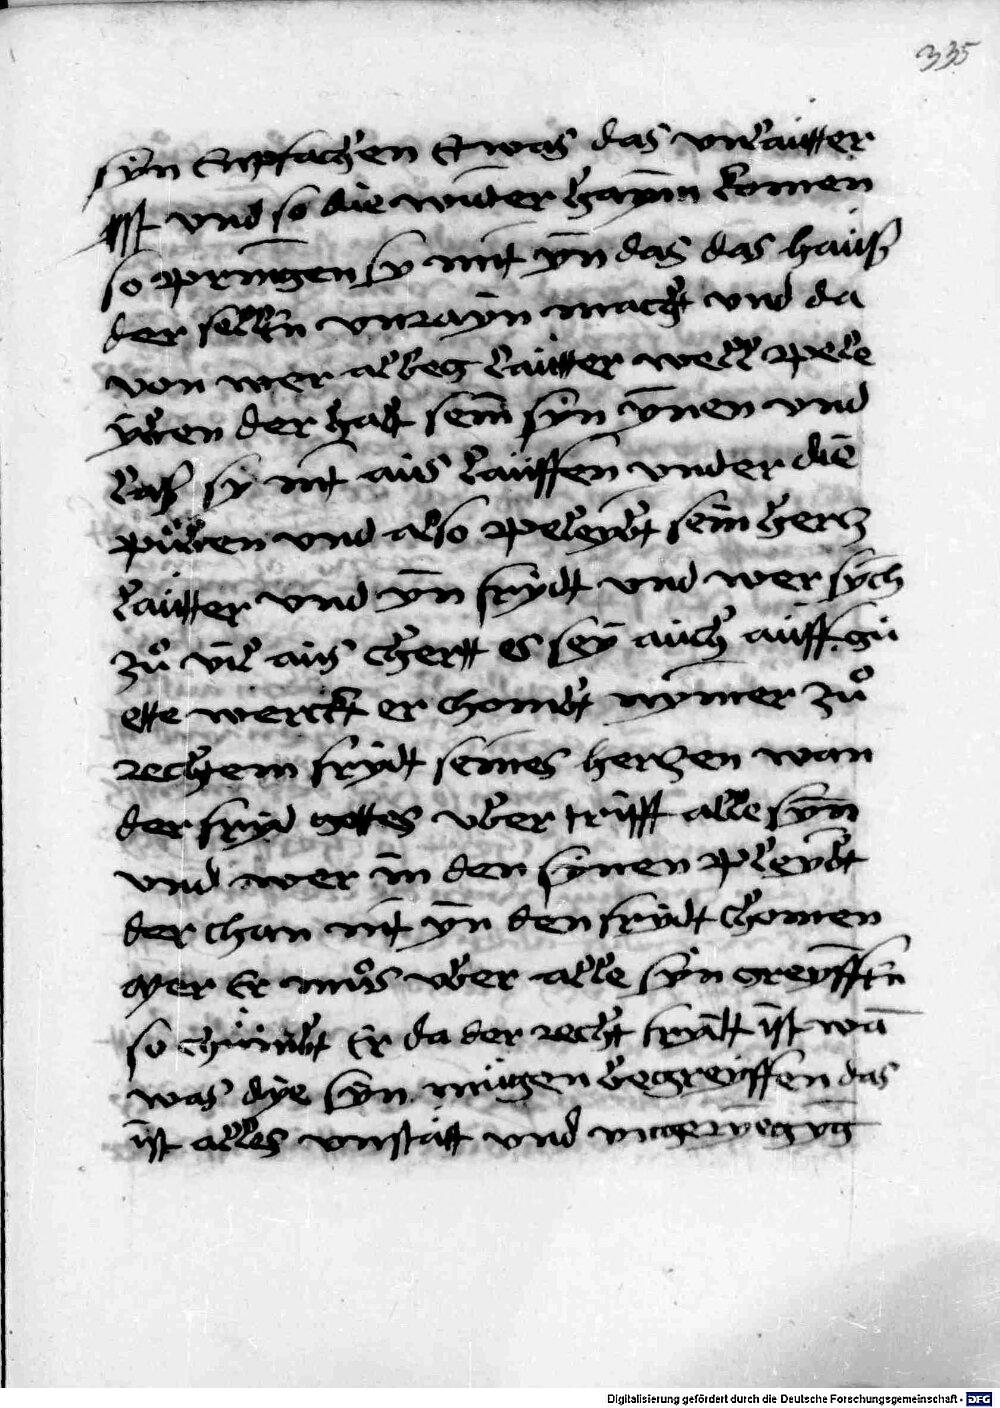 335
syn Enpfachen Etwas das vnlautter
jst vnd so die wider haym komen
so pringen sy mit yn das das hauß
der selen vnrayn macht vnd da
von wer albeg lautter well pele
yben der halt sein syn ynen vnd
laß sy nit aus lauffen vnder die
pulten vnd also peleybt sein hercz
lautter vnd yn frydt vnd wer sych
zu vil aus chertt es sey auch auff gu
ette werckt er chombt nymer zu
rechtem frydt seines herczen wan
der fryd gottes vber trifft alle syn
vnd wer in den synen pleybt
der chan nit yn den frydt chomen
Er mus vber alle syn greyffen
so chumbt Er da der recht frydt ist wan
was dye syn mugen begreyffen das
ist alles vnstatt vnd
Digitalisierung gefördert durch die Deutsche Forschungsgemeinschaft - DFG